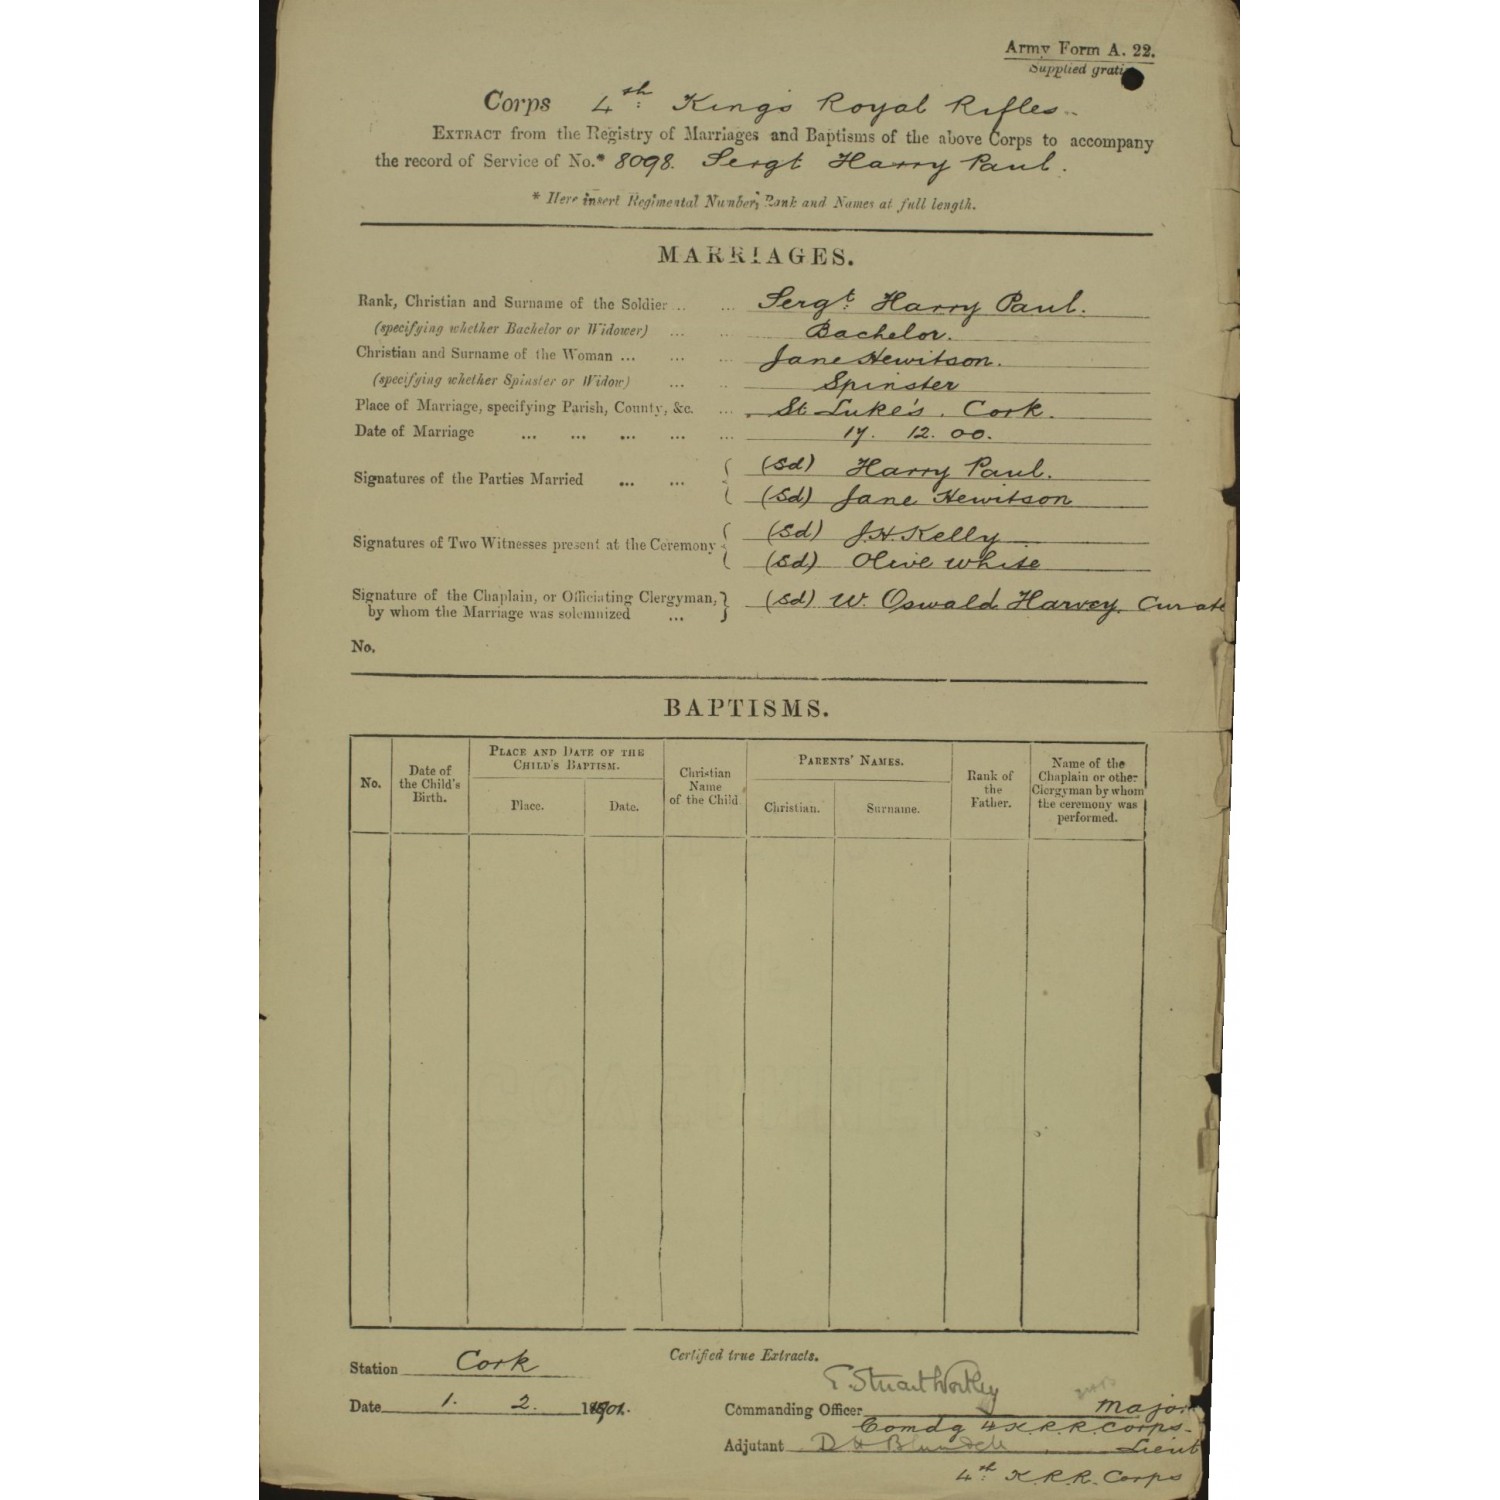 Army Form A. 22.
Supplied gratis
Corps 4th Kings Royal Rifles.
EXTRACT from the Registry of Marriages and Baptisms of the above Corps to accompany
the record of Service of No.* 8098. Sergt Harry Paul.
* Here insert Regimental Number, Rank and Names at full length.
MARRIAGES.
Rank, Christian and Surname of the Soldier .. ... Sergt. Harry Paul.
(specifying whether Bachelor or Widower) ... ... Bachelor.
Christian and Surname of the Woman ... ... ... Jane Hewitson.
(specifying whether Spinster or Widow) ... .. Spinster
Place of Marriage, specifying Parish, County, &c. ... St Luke's. Cork.
Date of Marriage ... ... ... ... ... 17. 12. 00.
Signatures of the Parties Married ... ... (Sd) Harry Paul.
(Sd) Jane Hewitson
Signatures of Two Witnesses present at the Ceremony (Sd) J.H. Kelly
(Sd) Olive White
Signature of the Chaplain, or Officiating Clergyman, (Sd) W. Oswald Harvey. Curate
by whom the Marriage was solemnized ...
No.
BAPTISMS.
No.
Date of the Child's Birth.
PLACE AND DATE OF THE CHILD'S BAPTISM.
Place.
Date.
Christian Name of the Child
PARENTS' NAMES.
Christian.
Surname.
Rank of the Father.
Name of the Chaplain or other Clergyman by whom the ceremony was performed.
Certified true Extracts.
Station Cork
Date 1. 2. 1901.
E. Stuart Wortley
Commanding Officer Major
Comdg 4 K.R.R. Corps.
Adjutant D H Blundell Lieut
4th K.R.R. Corps